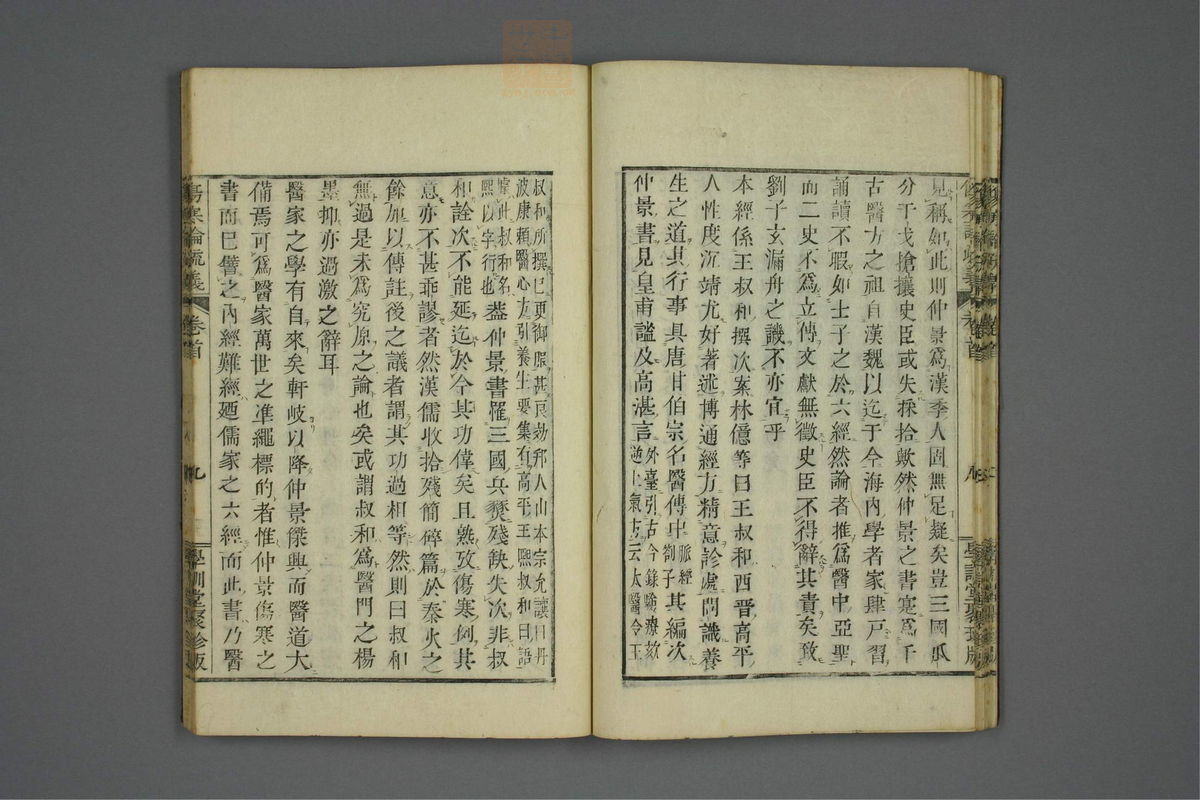 見稱如此則仲景爲漢季人固無足疑矣豈三國瓜
分干戈搶攘史臣或失採拾歟然仲景之書寔爲千
古醫方之祖自漢魏以迄于今海内學者家肆戸習
誦讀不暇如士子之於六經然論者推爲醫中亞聖
而二史不爲立傳文獻無徵史臣不得辭其責矣致
劉子玄漏舟之譏不亦宜乎
本經係王叔和撰次案林億等曰王叔和西晋高平
人性度沉靖尤好著述博通經方精意診處問識養
生之道其行事具唐甘伯宗名醫傳中脈經劄子其編次
仲景書見皇甫謐及高湛言外臺引古今錄驗療欬逆上氣方云太醫令王
叔和所撰已更御服甚良効邦人山本宗允讓曰丹
波康賴醫心方引養生要集有高平王熙叔和曰語
葢此叔和名熙以字行也葢仲景書罹三國兵燹殘缺失次非叔
和詮次不能延迄於今其功偉矣且熟攷傷寒例其
意亦不甚乖謬者然漢儒收拾殘簡碎篇於秦火之
餘加以傳註後之議者謂其功過相等然則曰叔和
無過是未爲究原之論也矣或謂叔和爲醫門之楊
墨抑亦過激之辭耳
醫家之學有自來矣軒岐以降仲景傑興而醫道大
備焉可爲醫家萬世之凖繩標的者惟仲景傷寒之
書而巳譬之内經難經廼儒家之六經而此書乃醫
傷寒論疏義 卷首 九 學訓堂聚珍版